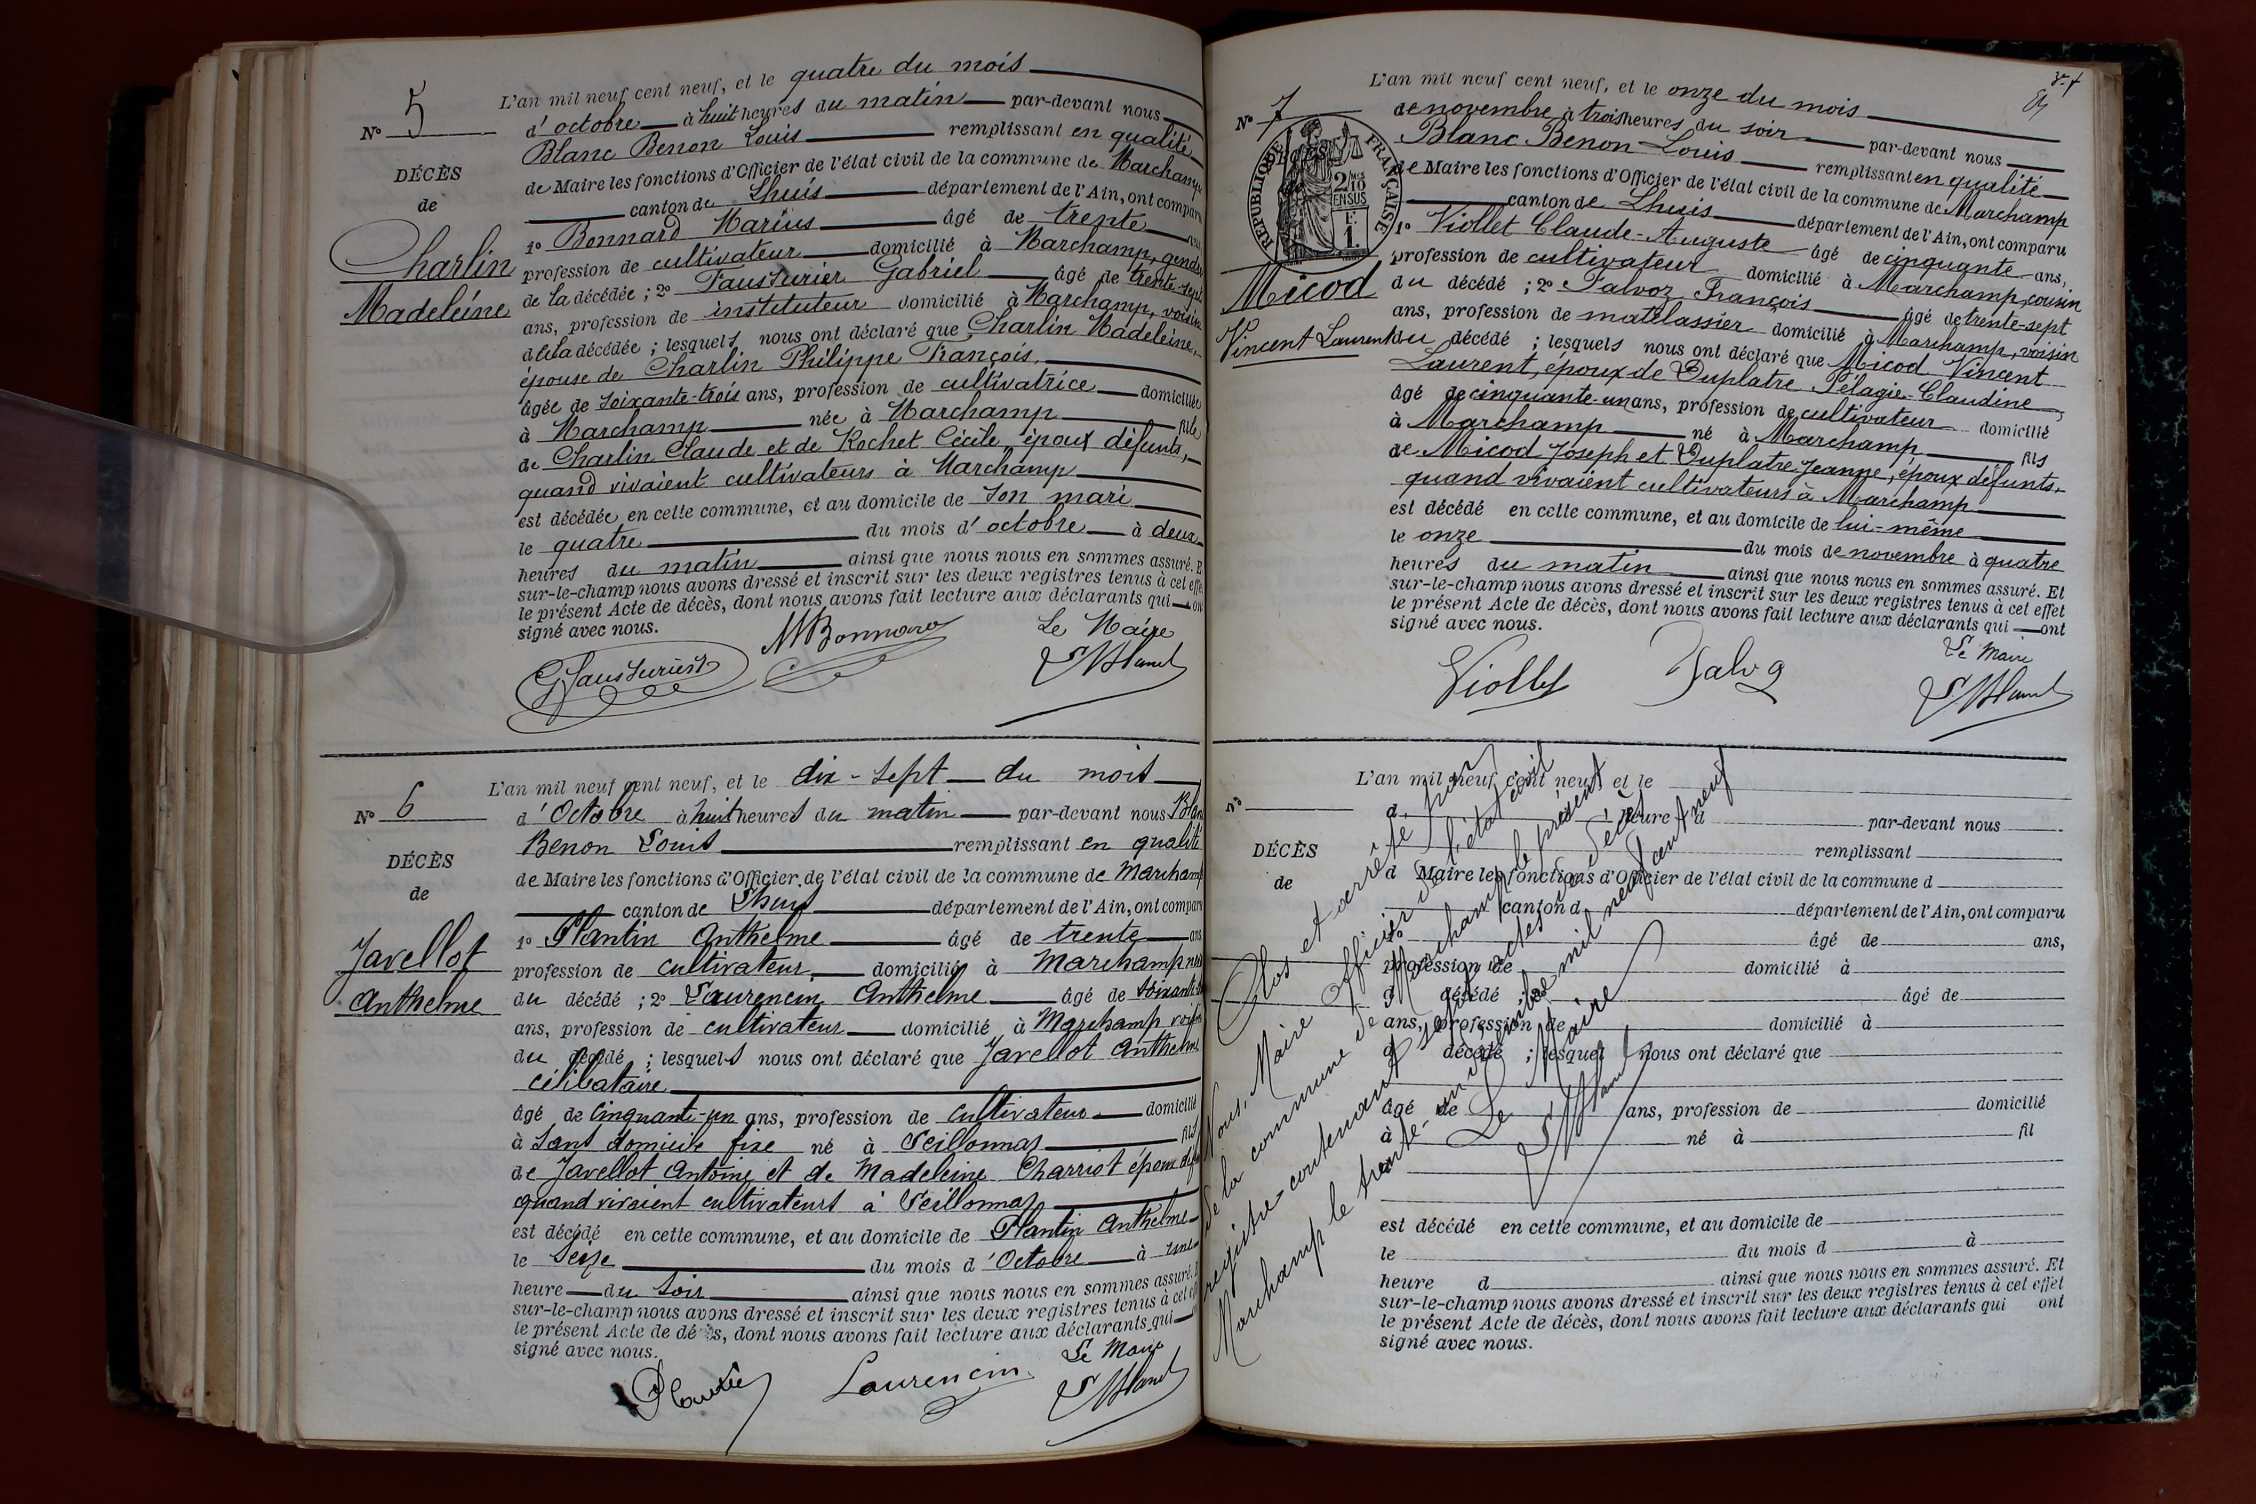 L'an mil neuf cent neuf, et le quatre du mois
d'octobre à huit heures du matin par-devant nous
Blanc Benon Louis remplissant en qualité
de Maire les fonctions d'Officier de l'état civil de la commune de Marchamp
canton de Lhuis département de l'Ain, ont comparu
1º Bonnard Marius âgé de trente
profession de cultivateur domicilié à Marchamp, gendre
de la décédée ; 2º Fausturier Gabriel âgé de trente-sept
ans, profession de instituteur domicilié à Marchamp, voisin
de la décédée ; lesquels nous ont déclaré que Charlin Madeleine,
épouse de Charlin Philippe François,
âgée de soixante-trois ans, profession de cultivatrice domiciliée
à Marchamp née à Marchamp fille
de Charlin Claude et de Rochet Cécile, époux défunts,
quand vivaient cultivateurs à Marchamp
est décédée en cette commune, et au domicile de son mari
le quatre du mois d'octobre à deux
heures du matin ainsi que nous nous en sommes assuré. E
sur-le-champ nous avons dressé et inscrit sur les deux registres tenus à cet effet
le présent Acte de décès, dont nous avons fait lecture aux déclarants qui on
signé avec nous.
Nº 5
DÉCÈS
de
Charlin
Madeleine
MBonnard
Le Maire
GFausturier
LBlanc
L'an mil neuf cent neuf, et le dix-sept du mois
d'Octobre à huit heures du matin par-devant nous Blanc
Benon Louis remplissant en qualité
de Maire les fonctions d'Officier de l'état civil de la commune de Marchamp
canton de Lhuis département de l'Ain, ont comparu
1º Plantin Anthelme âgé de trente ans
profession de cultivateur domicilié à Marchamp
du décédé ; 2º Laurencin Anthelme âgé de
ans, profession de cultivateur domicilié à Marchamp voisin
du décédé ; lesquels nous ont déclaré que Javellot Anthelme
célibataire
âgé de cinquante-un ans, profession de cultivateur domicilié
à sans domicile fixe né à Seillonnas fils
de Javellot Antoine et de Madeleine Charriot époux
quand vivaient cultivateurs à Seillonnas
est décédé en cette commune, et au domicile de Plantin Anthelme
le seize du mois d'Octobre à une
heure du soir ainsi que nous nous en sommes assuré.
sur-le-champ nous avons dressé et inscrit sur les deux registres tenus à cet
le présent Acte de décès, dont nous avons fait lecture aux déclarants qui
signé avec nous.
Nº 6
DÉCÈS
de
Javellot
Anthelme
Plantin
Laurencin
Le Maire
LBlanc
L'an mil neuf cent neuf, et le onze du mois
de novembre à trois heures du soir par-devant nous
Blanc Benon Louis remplissant en qualité
de Maire les fonctions d'Officier de l'état civil de la commune de Marchamp
canton de Lhuis département de l'Ain, ont comparu
1º Viollet Claude-Auguste âgé de cinquante ans,
profession de cultivateur domicilié à Marchamp, cousin
du décédé ; 2º Talvoz François âgé de trente-sept
ans, profession de matelassier domicilié à Marchamp, voisin
du décédé ; lesquels nous ont déclaré que Micod Vincent
Laurent, époux de Duplatre Pélagie-Claudine,
âgé de cinquante-un ans, profession de cultivateur domicilié
à Marchamp né à Marchamp fils
de Micod Joseph et Duplatre Jeanne, époux défunts,
quand vivaient cultivateurs à Marchamp
est décédé en cette commune, et au domicile de lui-même
le onze du mois de novembre à quatre
heures du matin ainsi que nous nous en sommes assuré. Et
sur-le-champ nous avons dressé et inscrit sur les deux registres tenus à cet effet
le présent Acte de décès, dont nous avons fait lecture aux déclarants qui ont
signé avec nous.
Nº 7
RÉPUBLIQUE FRANÇAISE
2/10 EN SUS
Micod
Vincent Laurent
Viollet
Talvoz
Le Maire
LBlanc
L'an mil neuf cent neuf, et le
d heure d par-devant nous
remplissant
d Maire les fonctions d'Officier de l'état civil de la commune d
canton d département de l'Ain, ont comparu
1º âgé de ans,
profession de domicilié à
d décédé ; 2º âgé de
ans, profession de domicilié à
d décédé ; lesquel nous ont déclaré que
âgé de ans, profession de domicilié
à né à fil
de
est décédé en cette commune, et au domicile de
le du mois d à
heure d ainsi que nous nous en sommes assuré. Et
sur-le-champ nous avons dressé et inscrit sur les deux registres tenus à cet effet
le présent Acte de décès, dont nous avons fait lecture aux déclarants qui ont
signé avec nous.
Nº
DÉCÈS
de
Clos et arrêté par
Nous, Maire Officier de l'état civil
de la commune de Marchamp le présent
registre contenant sept actes de décès
Marchamp le trente-un décembre mil neuf cent neuf
Le Maire
LBlanc